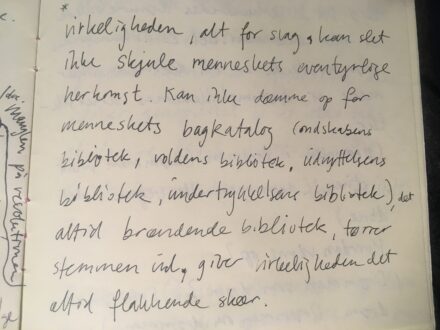 *
virkeligheden, alt for slag, kan slet
ikke skjule menneskets eventyrlige
herkomst. Kan ikke dæmme op for
menneskets bagkatalog (ondskabens
bibliotek, voldens bibliotek, udnyttelsens
bibliotek, undertrykkelsens bibliotek), det
altid brændende bibliotek, tørrer
stemmen ind, giver virkeligheden det
altid flakkende skær.
på revolutionen